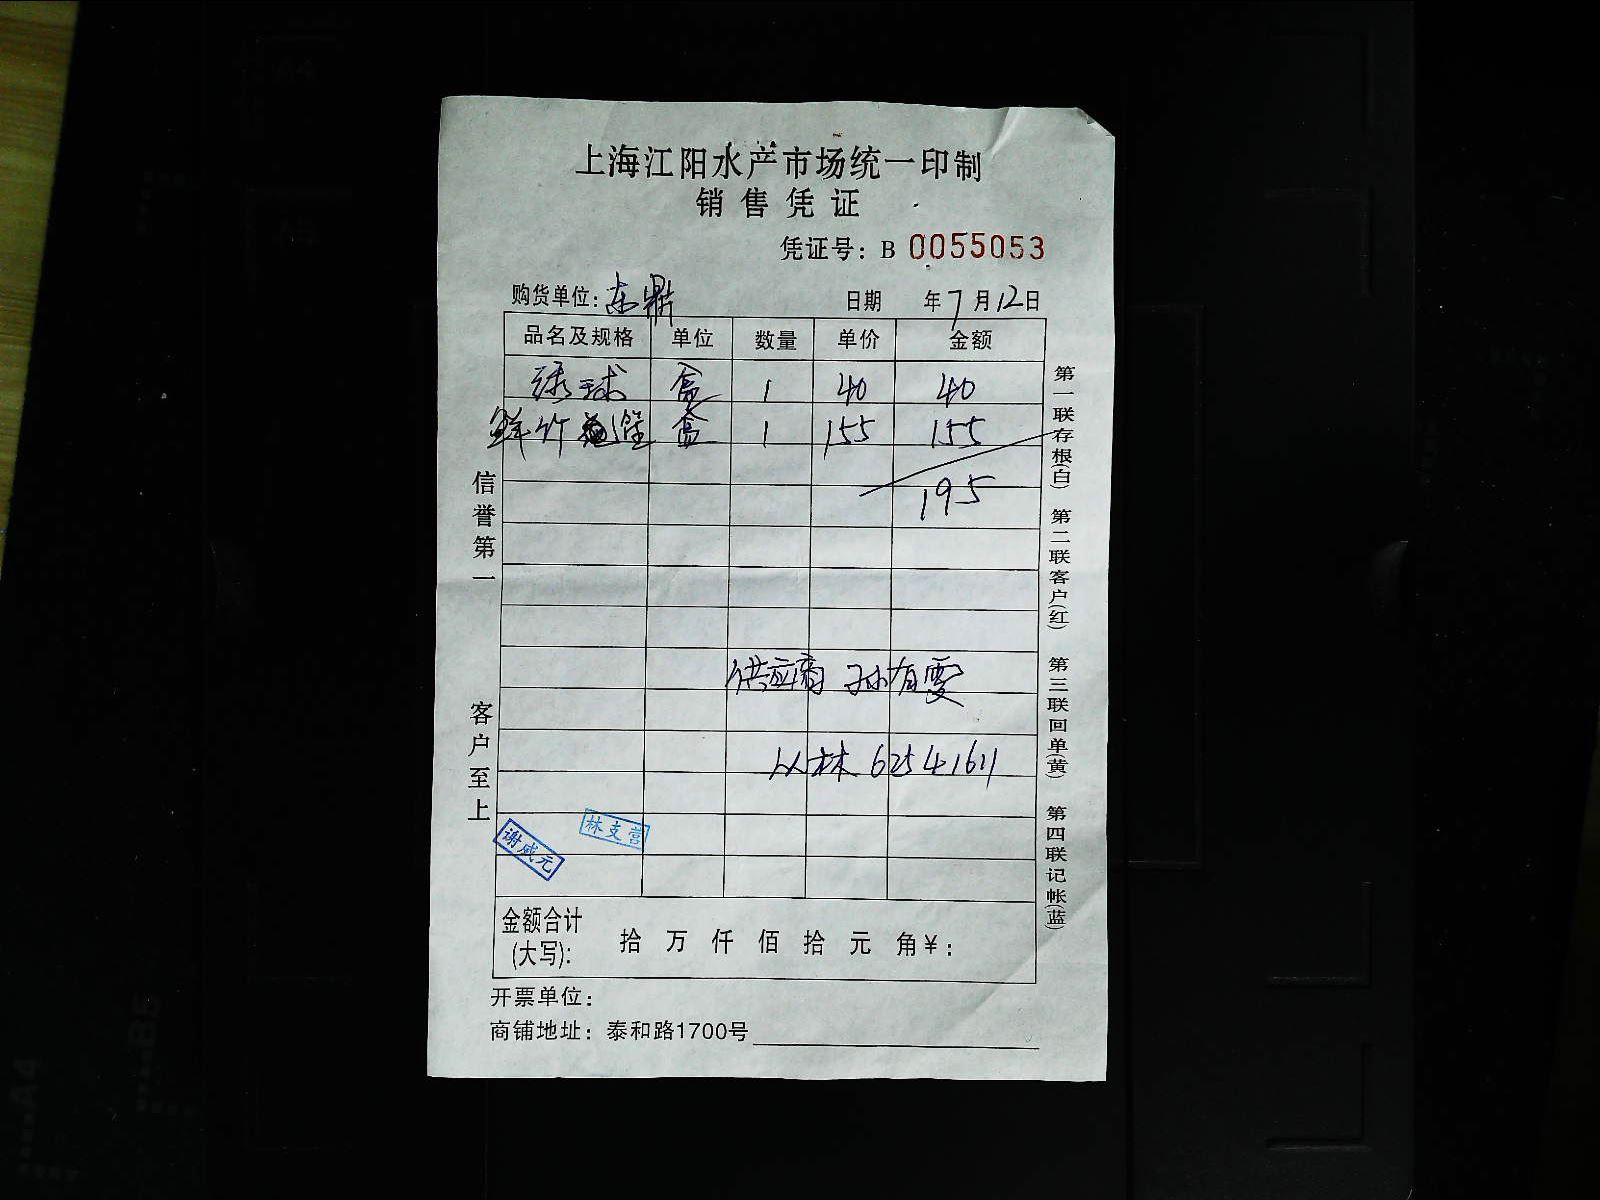 上海江阳水产市场统一印制
销售凭证
凭证号：B 0055053
购货单位：东鼎 日期 年7月12日
品名及规格 单位 数量 单价 金额
球 盒 1 40 40
鲜竹 盒 1 155 155
195
供应商 孙有雯
林 62541611
林支营
谢成元
金额合计(大写)： 拾 万 仟 佰 拾 元 角￥：
开票单位：
商铺地址：泰和路1700号
信誉第一
客户至上
第一联存根(白) 第二联客户(红) 第三联回单(黄) 第四联记帐(蓝)